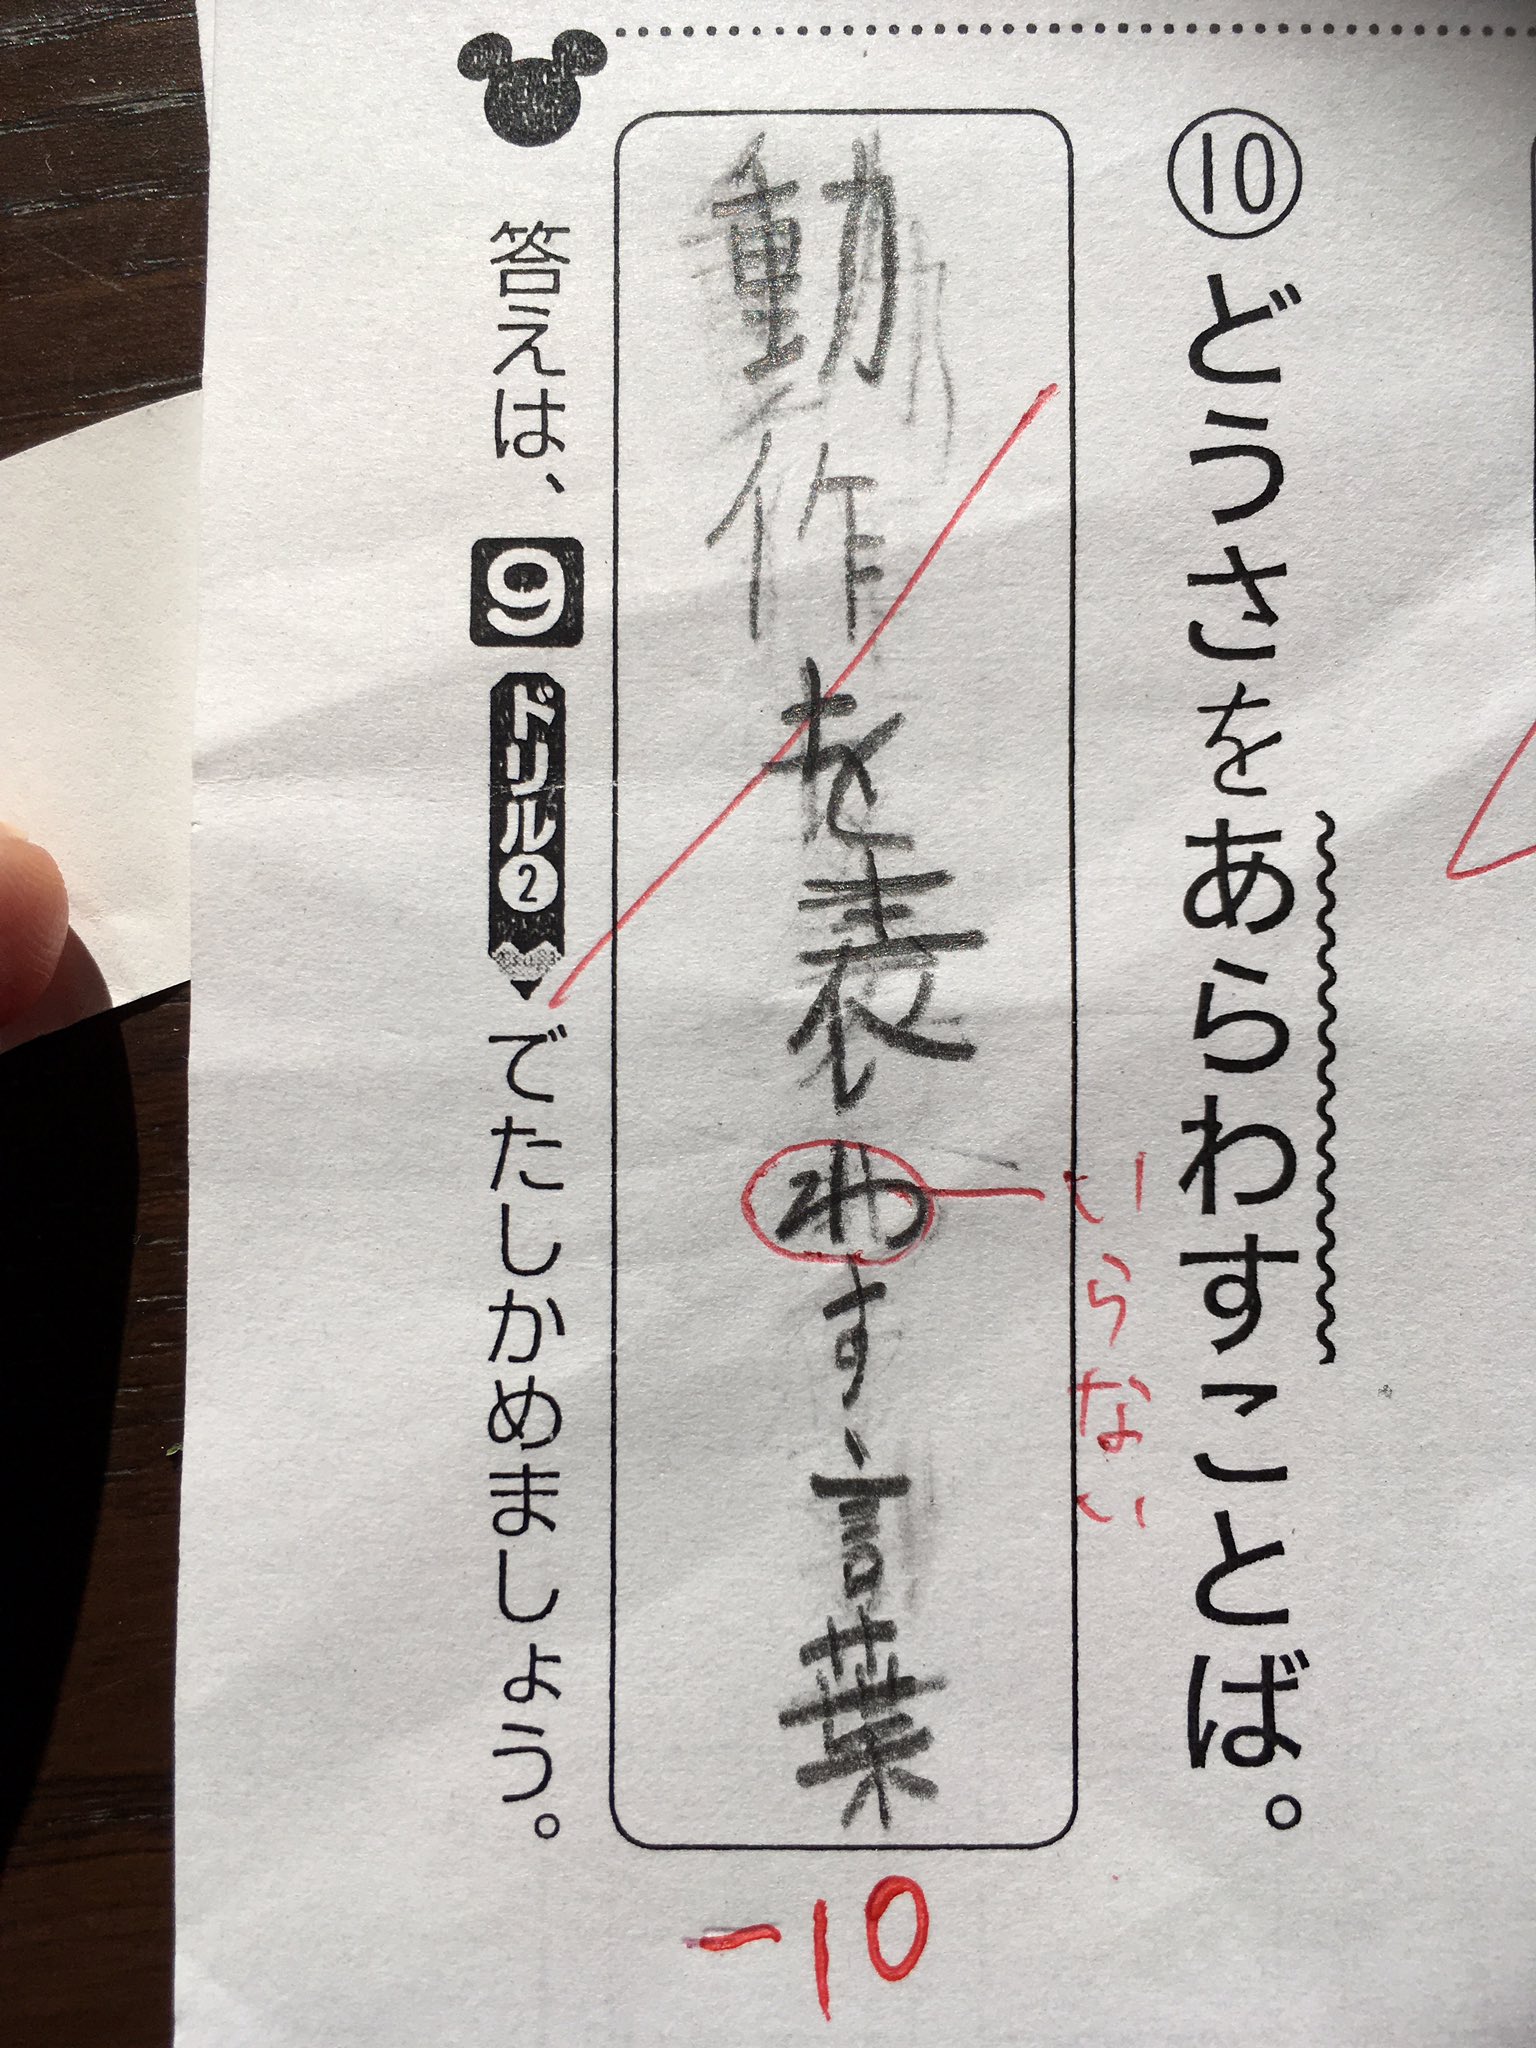 ⑩どうさをあらわすことば。
いらない
動作を表わす言葉
-10
答えは、9ドリル②でたしかめましょう。